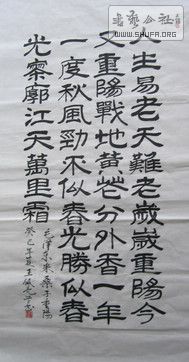 書藝公社
WWW.SHUFA.ORG
人生易老天難老歲歲重陽今
又重陽戰地黄花分外香一年
一度秋風勁不似春光勝似春
光寥廓江天萬里霜
毛澤東采桑子重陽
癸巳年